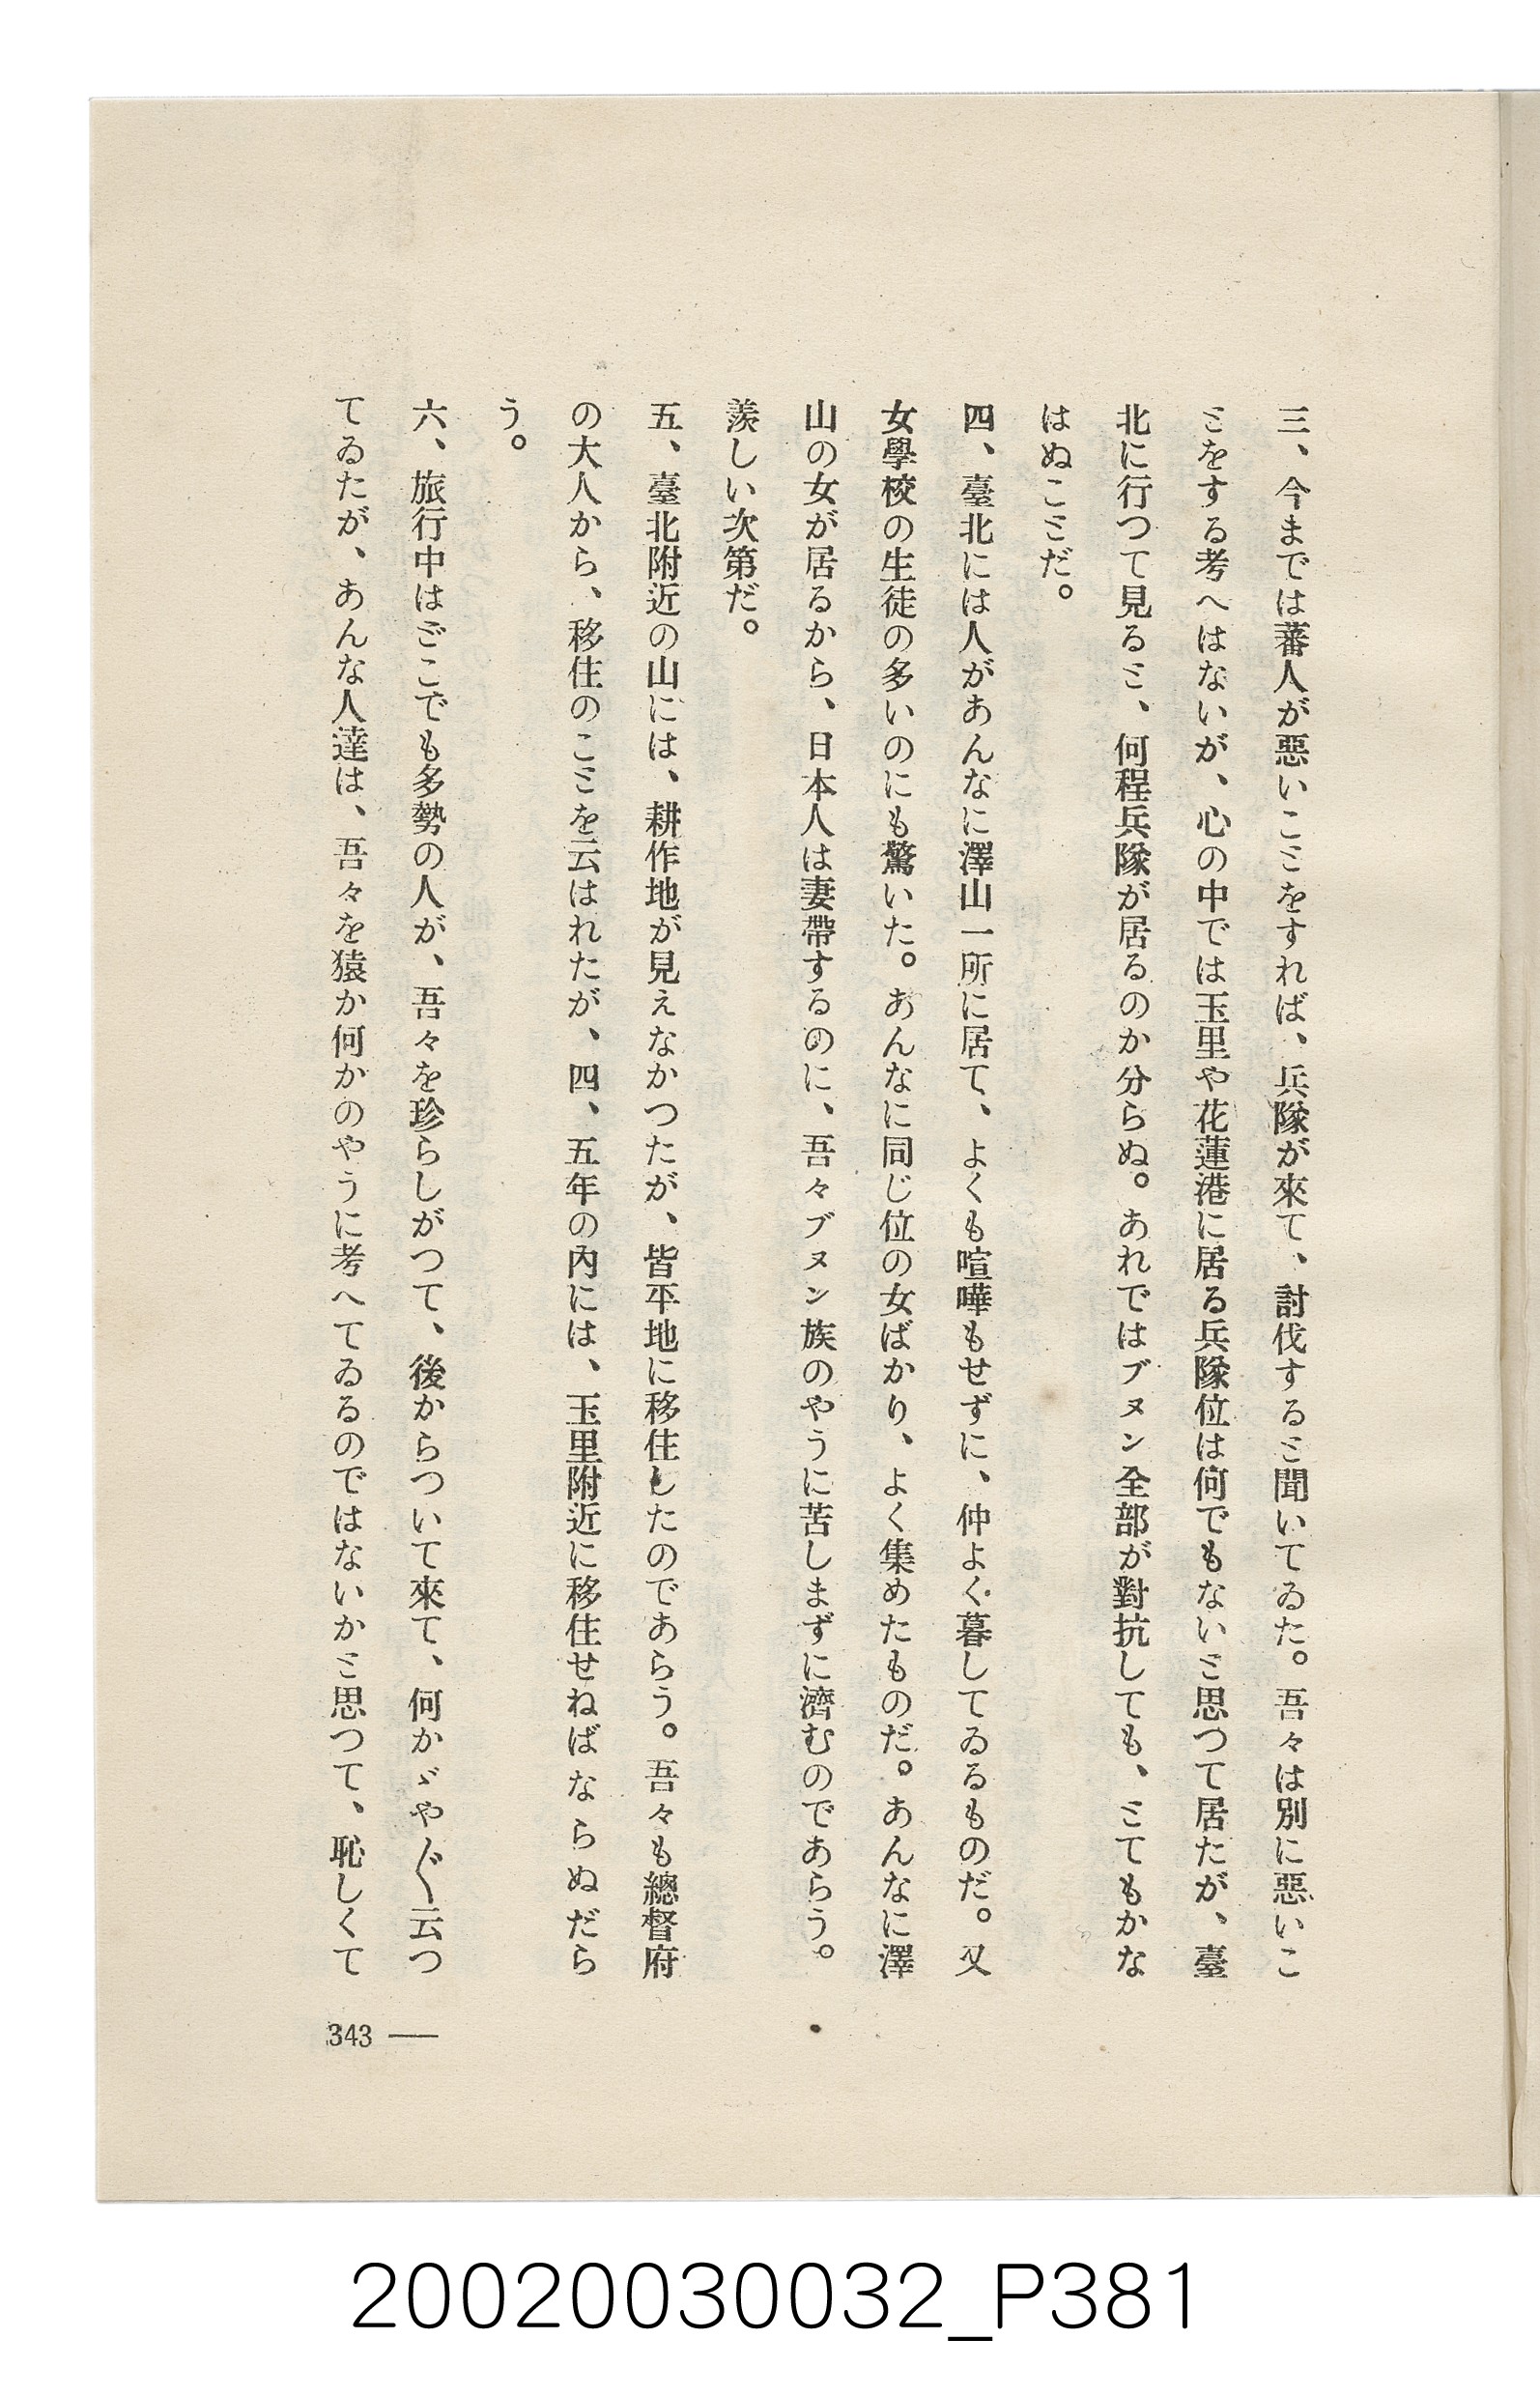 三、今までは蕃人が惡いことをすれば、兵隊が來て、討伐すると聞いてゐた。吾々は別に惡いこ
とをする考へはないが、心の中では玉里や花蓮港に居る兵隊位は何でもないと思つて居たが、臺
北に行つて見ると、何程兵隊が居るのか分らぬ。あれではブヌン全部が對抗しても、とてもかな
はぬことだ。
四、臺北には人があんなに澤山一所に居て、よくも喧嘩もせずに、仲よく暮してゐるものだ。又
女學校の生徒の多いのにも驚いた。あんなに同じ位の女ばかり、よく集めたものだ。あんなに澤
山の女が居るから、日本人は妻帶するのに、吾々ブヌン族のやうに苦しまずに濟むのであらう。
羨しい次第だ。
五、臺北附近の山には、耕作地が見えなかつたが、皆平地に移住したのであらう。吾々も總督府
の大人から、移住のことを云はれたが、四、五年の內には、玉里附近に移住せねばならぬだら
う。
六、旅行中はどこでも多勢の人が、吾々を珍らしがつて、後からついて來て、何かゞや〴〵云つ
てゐたが、あんな人達は、吾々を猿か何かのやうに考へてゐるのではないかと思つて、恥しくて
343 —
20020030032_P381